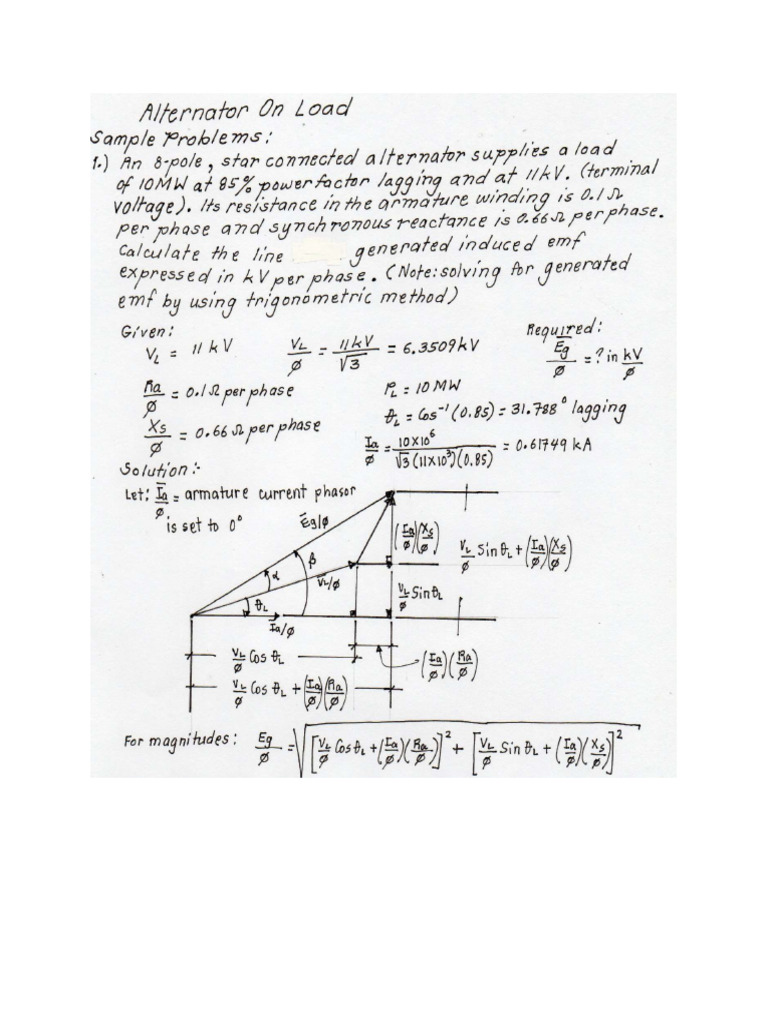 Alternator On Load
Sample Problems:
1.) An 8-pole, star connected alternator supplies a load
of 10MW at 85% power factor lagging and at 11kV. (terminal
voltage). Its resistance in the armature winding is 0.1Ω
per phase and synchronous reactance is 0.66Ω per phase.
Calculate the line generated induced emf
expressed in kV per phase. (Note: solving for generated
emf by using trigonometric method)
Given:
V_L = 11 kV
V_L/ø = 11kV/√3 = 6.3509kV
Required:
E̅g/ø = ? in kV/ø
Ra/ø = 0.1Ω per phase
P_L = 10 MW
Xs/ø = 0.66Ω per phase
θ_L = Cos⁻¹ (0.85) = 31.788° lagging
Ia/ø = 10X10⁶/√3 (11X10³)(0.85) = 0.61749 kA
Solution:-
Let: I̅a/ø = armature current phasor
is set to 0°
E̅g/ø
β
α
V̅_L/ø
θ_L
Ia/ø
(Ia/ø)(Xs/ø)
V_L/ø Sin θ_L
V_L/ø Sin θ_L + (Ia/ø)(Xs/ø)
V_L/ø Cos θ_L
(Ia/ø)(Ra/ø)
V_L/ø Cos θ_L + (Ia/ø)(Ra/ø)
For magnitudes: Eg/ø = √[V_L/ø Cos θ_L + (Ia/ø)(Ra/ø)]² + [V_L/ø Sin θ_L + (Ia/ø)(Xs/ø)]²